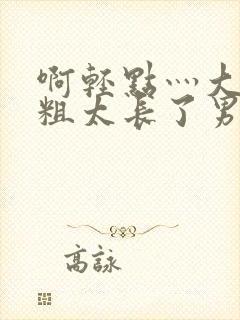 啊輕點灬大
粗太長了男
高詠